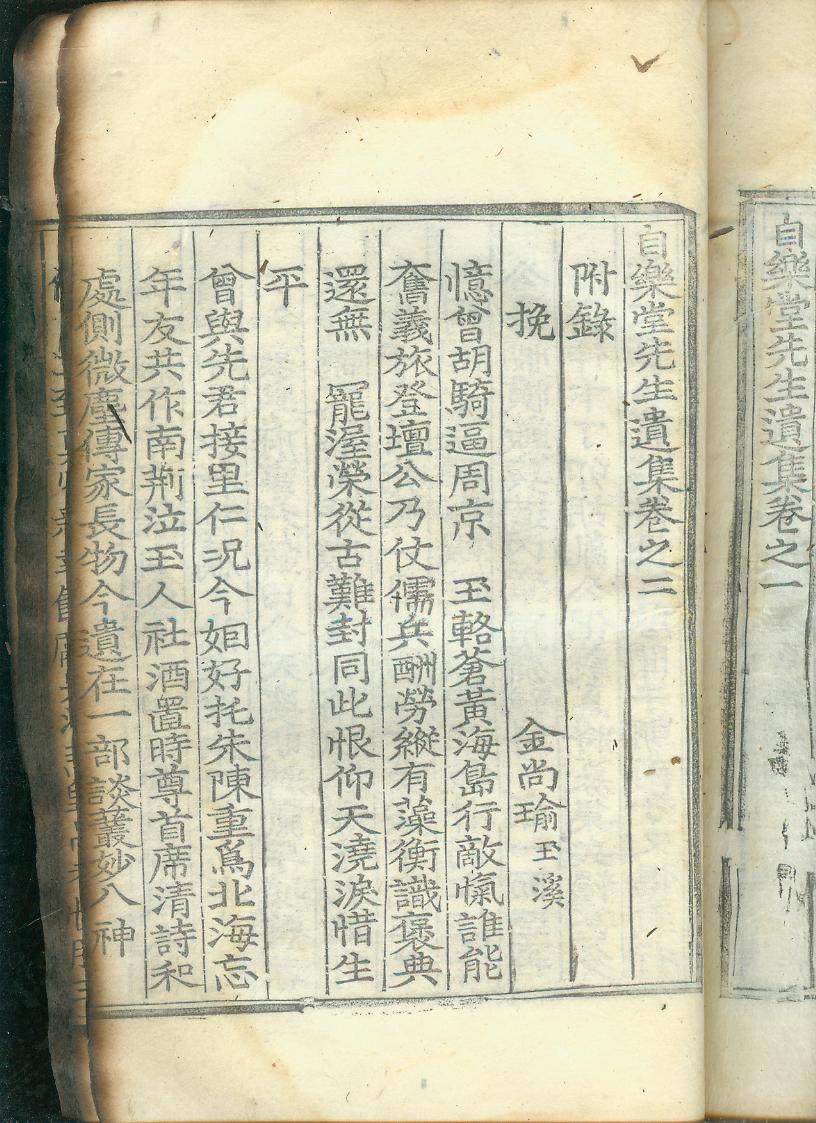 自樂堂先生遺集卷之一
自樂堂先生遺集卷之二
附錄
挽
金尚瑜玉溪
憶曾胡騎逼周京 玉輅蒼黃海島行敵愾誰能
奮義旅登壇公乃仗儒兵酬勞縱有藻衡識褒典
還無 寵渥榮從古難封同此恨仰天澆淚惜生
平
曾與先君接里仁况今姻好托朱陳重爲北海忘
年友共作南荊泣玉人社酒置時尊首席清詩和
處側微塵傳家長物今遺在一部談叢妙入神